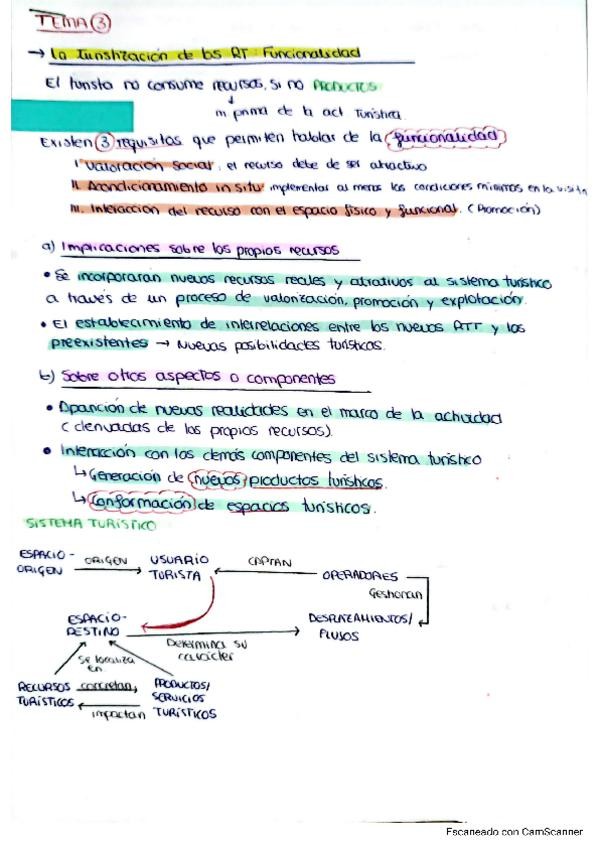 TEMA 3
→ La Turistización de los RT: Funcionalidad
El turista no consume recursos, si no PRODUCTOS
↓
m prima de la act Turística.
Existen 3 requisitos que permiten hablar de la funcionalidad
I Valoración social, el recurso debe de ser atractivo
II. Acondicionamiento in situ implementar al menos las condiciones mínimas en la visita
III. Interacción del recurso con el espacio físico y funcional. (Promoción)
a) Implicaciones sobre los propios recursos
• Se incorporarán nuevos recursos reales y atrativos al sistema turístico
a través de un proceso de valorización, promoción y explotación.
• El establecimiento de interrelaciones entre los nuevos ATT y los
preexistentes → Nuevas posibilidades turísticas.
b) Sobre otros aspectos o componentes
• Aparición de nuevas realidades en el marco de la actividad
(derivadas de los propios recursos).
• Interacción con los demás componentes del sistema turístico
↳ Generación de nuevos productos turísticos.
↳ Conformación de espacios turísticos.
SISTEMA TURÍSTICO
ESPACIO-ORIGEN
ORIGEN
USUARIO TURISTA
CAPTAN
OPERADORES
Gestionan
ESPACIO-DESTINO
Determina su carácter
DESPLAZAMIENTOS/FLUJOS
Se localiza en
RECURSOS TURÍSTICOS
concretan
impactan
PRODUCTOS/SERVICIOS TURÍSTICOS
Escaneado con CamScanner